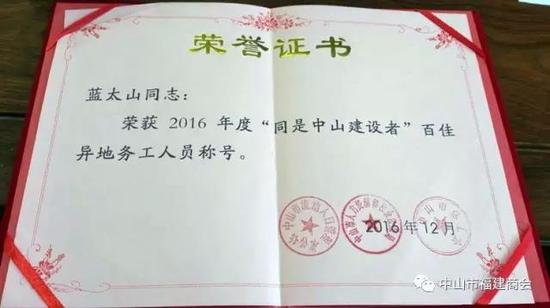 荣誉证书
蓝太山同志:
荣获 2016 年度“同是中山建设者”百佳
异地务工人员称号。
2016 年 12 月
中山市福建商会